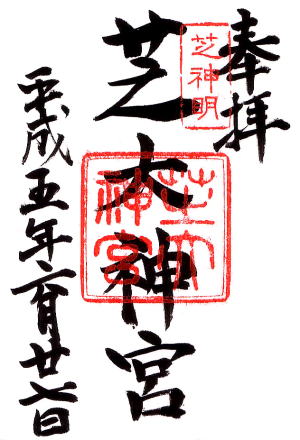 奉拝
芝神明
芝大神宮
芝大神宮
平成五年六月廿七日